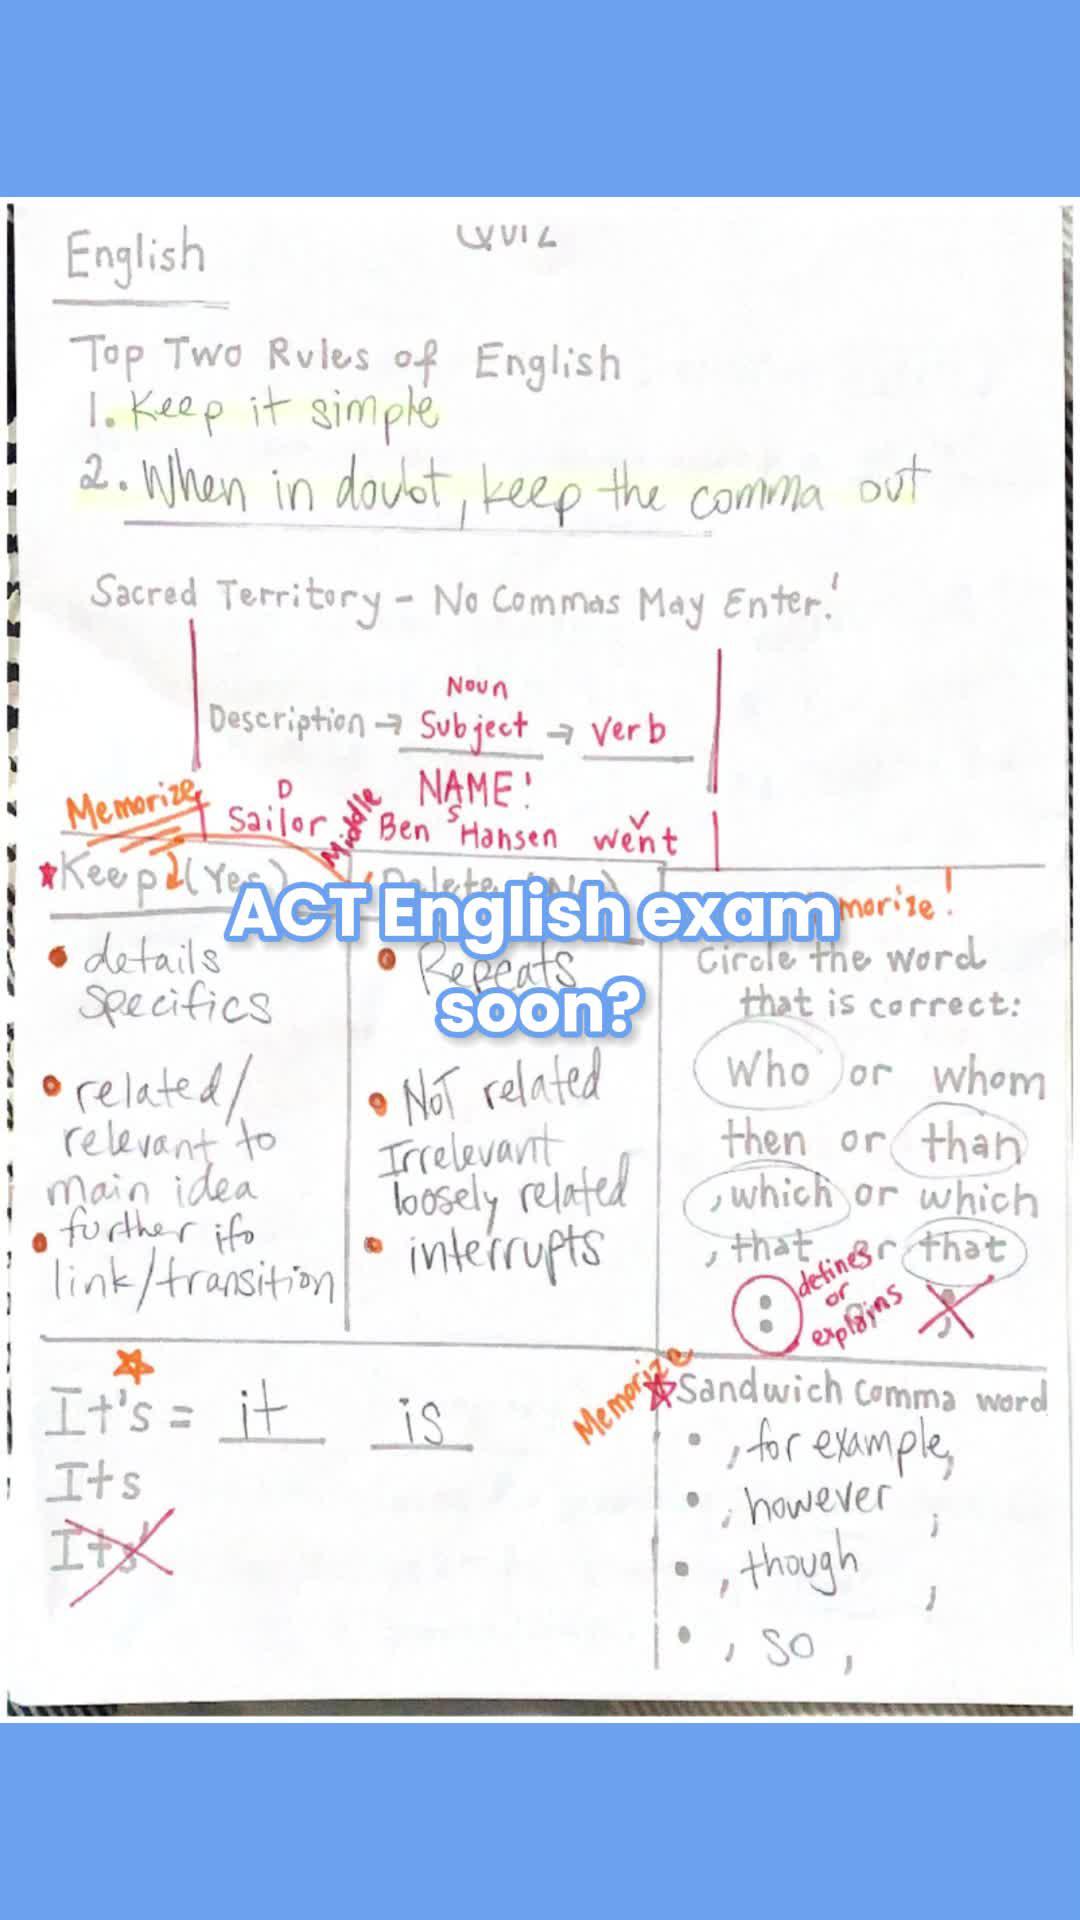 English
QUIZ
Top Two Rules of English
1. Keep it simple
2. When in doubt, keep the comma out
Sacred Territory - No Commas May Enter!
Noun
Description → Subject → Verb
NAME!
Memorize
D S V
Sailor Ben Hansen went
Middle
Keep (Yes)
ACT English exam
soon?
• details
specifics
• related/
relevant to
main idea
• further ifo
link/transition
• Repeats
• NOT related
Irrelevant
loosely related
• interrupts
Circle the word
that is correct:
Who or whom
then or than
, which or which
, that or that
: defines
or
explains
;
It's = it is
Its
Its'
Memorize
Sandwich comma word
• , for example,
• , however ,
• , though ,
• , so ,